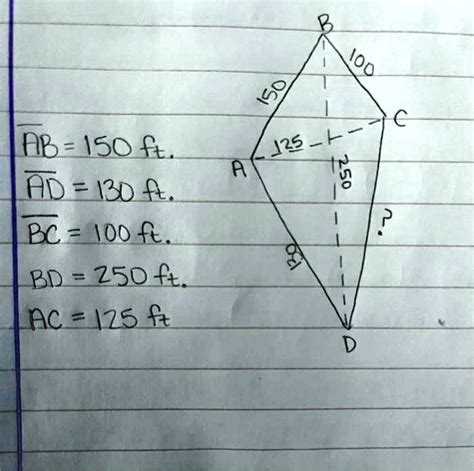 B
100
150
C
125
A
250
?
130
D
AB = 150 ft.
AD = 130 ft.
BC = 100 ft.
BD = 250 ft.
AC = 125 ft